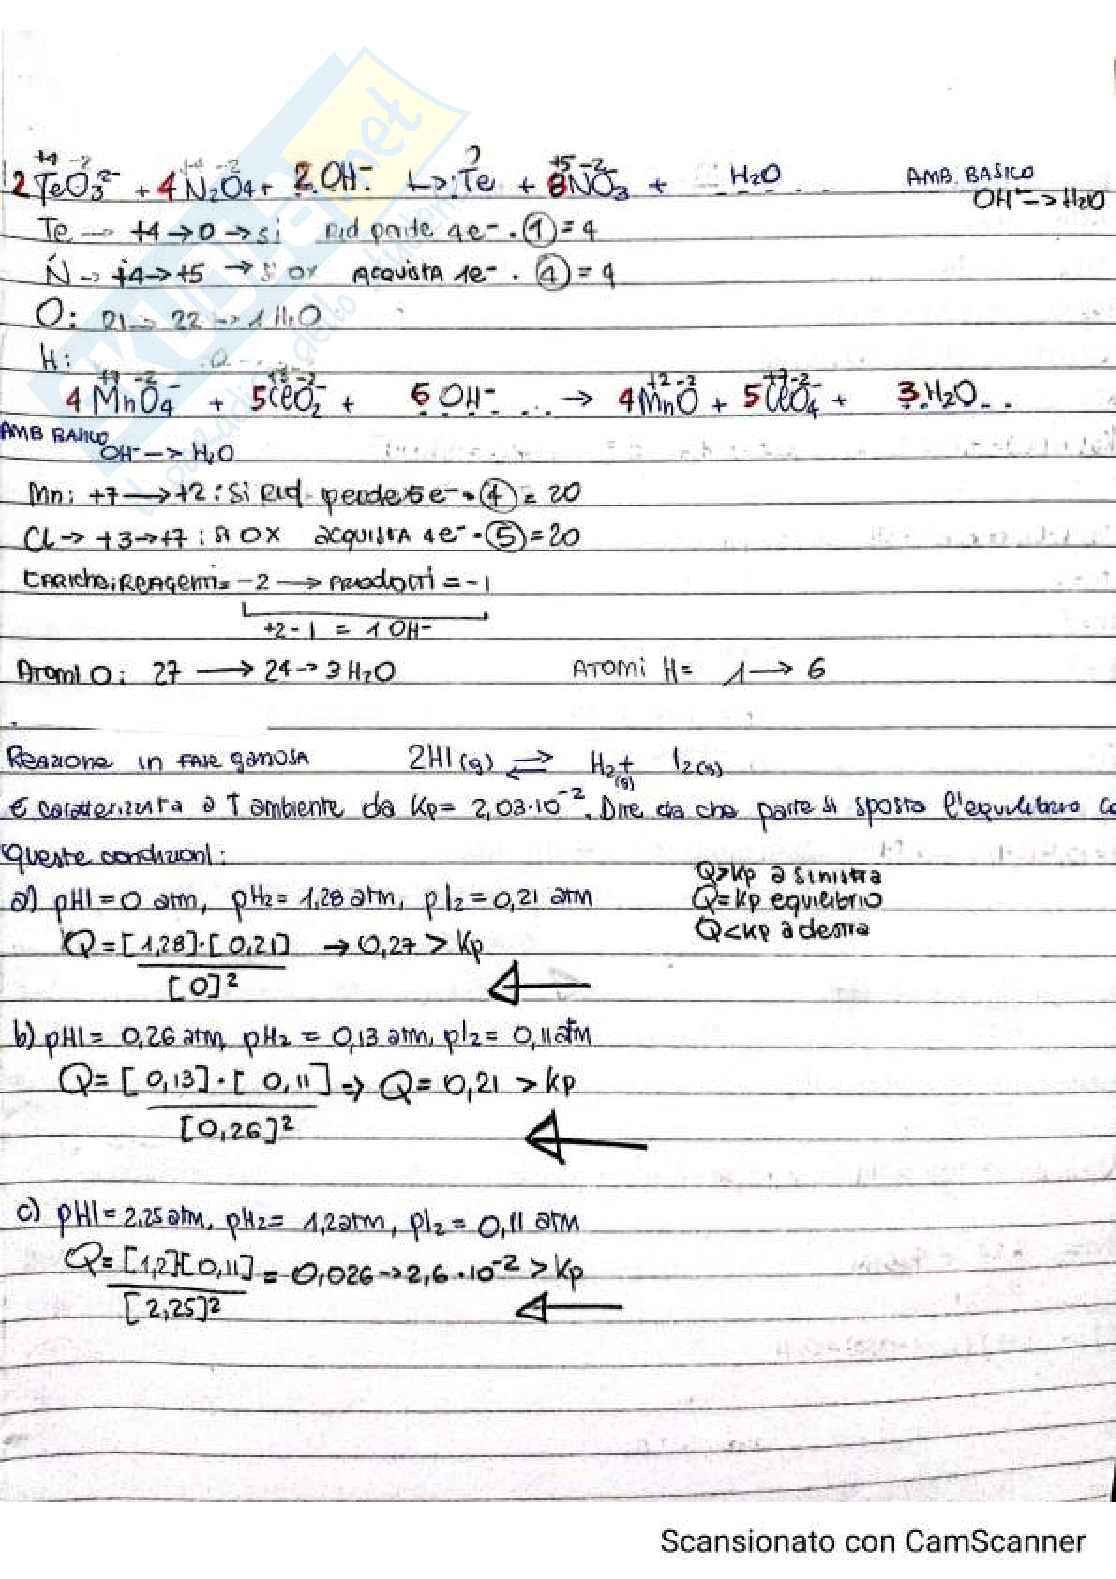 +4 -2 +4 -2 ? +5 -2
2 TeO3²⁻ + 4 N2O4 + 2 OH⁻ → Te + 8 NO3⁻ + H2O AMB. BASICO
OH⁻ → H2O
Te → +4 → 0 → si rid perde 4e⁻ · 1 = 4
N → +4 → +5 → si ox ACQUISTA 1e⁻ · 4 = 4
O: 21 → 22 → 1 H2O
H:
+7 -2 +3 -2 +2 -2 +7 -2
4 MnO4⁻ + 5 ClO2⁻ + 6 OH⁻ → 4 MnO + 5 ClO4⁻ + 3 H2O
AMB BASICO
OH⁻ → H2O
Mn: +7 → +2 : Si Rid perde 5e⁻ · 4 = 20
Cl → +3 → +7 : si OX acquista 4e⁻ · 5 = 20
Cariche: REAGENTI = -2 → PRODOTTI = -1
+2 -1 = 1 OH⁻
Atomi O: 27 → 24 → 3 H2O ATOMI H = 1 → 6
Reazione in fase gassosa 2HI(g) ⇌ H2(g) + I2(g)
è caratterizzata a T ambiente da Kp = 2,03·10⁻². Dire da che parte si sposta l'equilibrio
queste condizioni:
Q>Kp a sinistra
a) pHI = 0 atm, pH2 = 1,28 atm, pI2 = 0,21 atm Q=Kp equilibrio
Q<Kp a destra
Q = [1,28]·[0,21] → 0,27 > Kp
[0]²
b) pHI = 0,26 atm, pH2 = 0,13 atm, pI2 = 0,11 atm
Q = [0,13]·[0,11] => Q = 0,21 > Kp
[0,26]²
c) pHI = 2,25 atm, pH2 = 1,2 atm, pI2 = 0,11 atm
Q = [1,2][0,11] = 0,026 → 2,6·10⁻² > Kp
[2,25]²
Scansionato con CamScanner